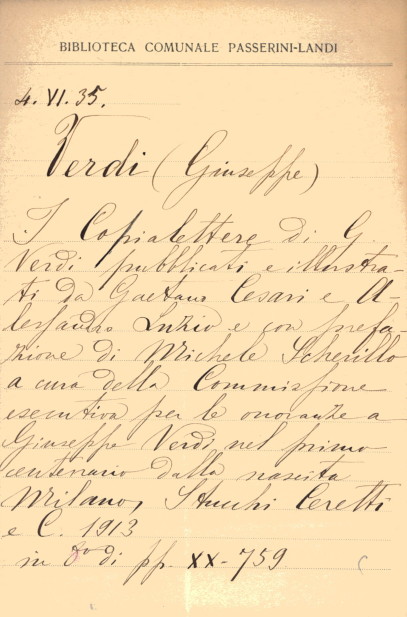 BIBLIOTECA COMUNALE PASSERINI-LANDI
4. VI. 35.
Verdi (Giuseppe)
I Copialettere di G.
Verdi pubblicati e illustra-
ti da Gaetano Cesari e A-
lessandro Luzio e con prefa-
zione di Michele Scherillo
a cura della Commissione
esecutiva per le onoranze a
Giuseppe Verdi nel primo
centenario dalla nascita
Milano, Stucchi Ceretti
e C. 1913
in 8° di pp. XX-759